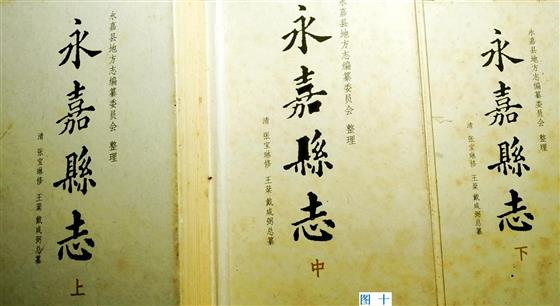 永嘉县地方志编纂委员会 整理
永嘉縣志
清 张宝琳修 王棻 戴咸弼总纂
上
永嘉县地方志编纂委员会 整理
永嘉縣志
清 张宝琳修 王棻 戴咸弼总纂
中
永嘉县地方志编纂委员会 整理
永嘉縣志
清 张宝琳修 王棻 戴咸弼总纂
下
图 十